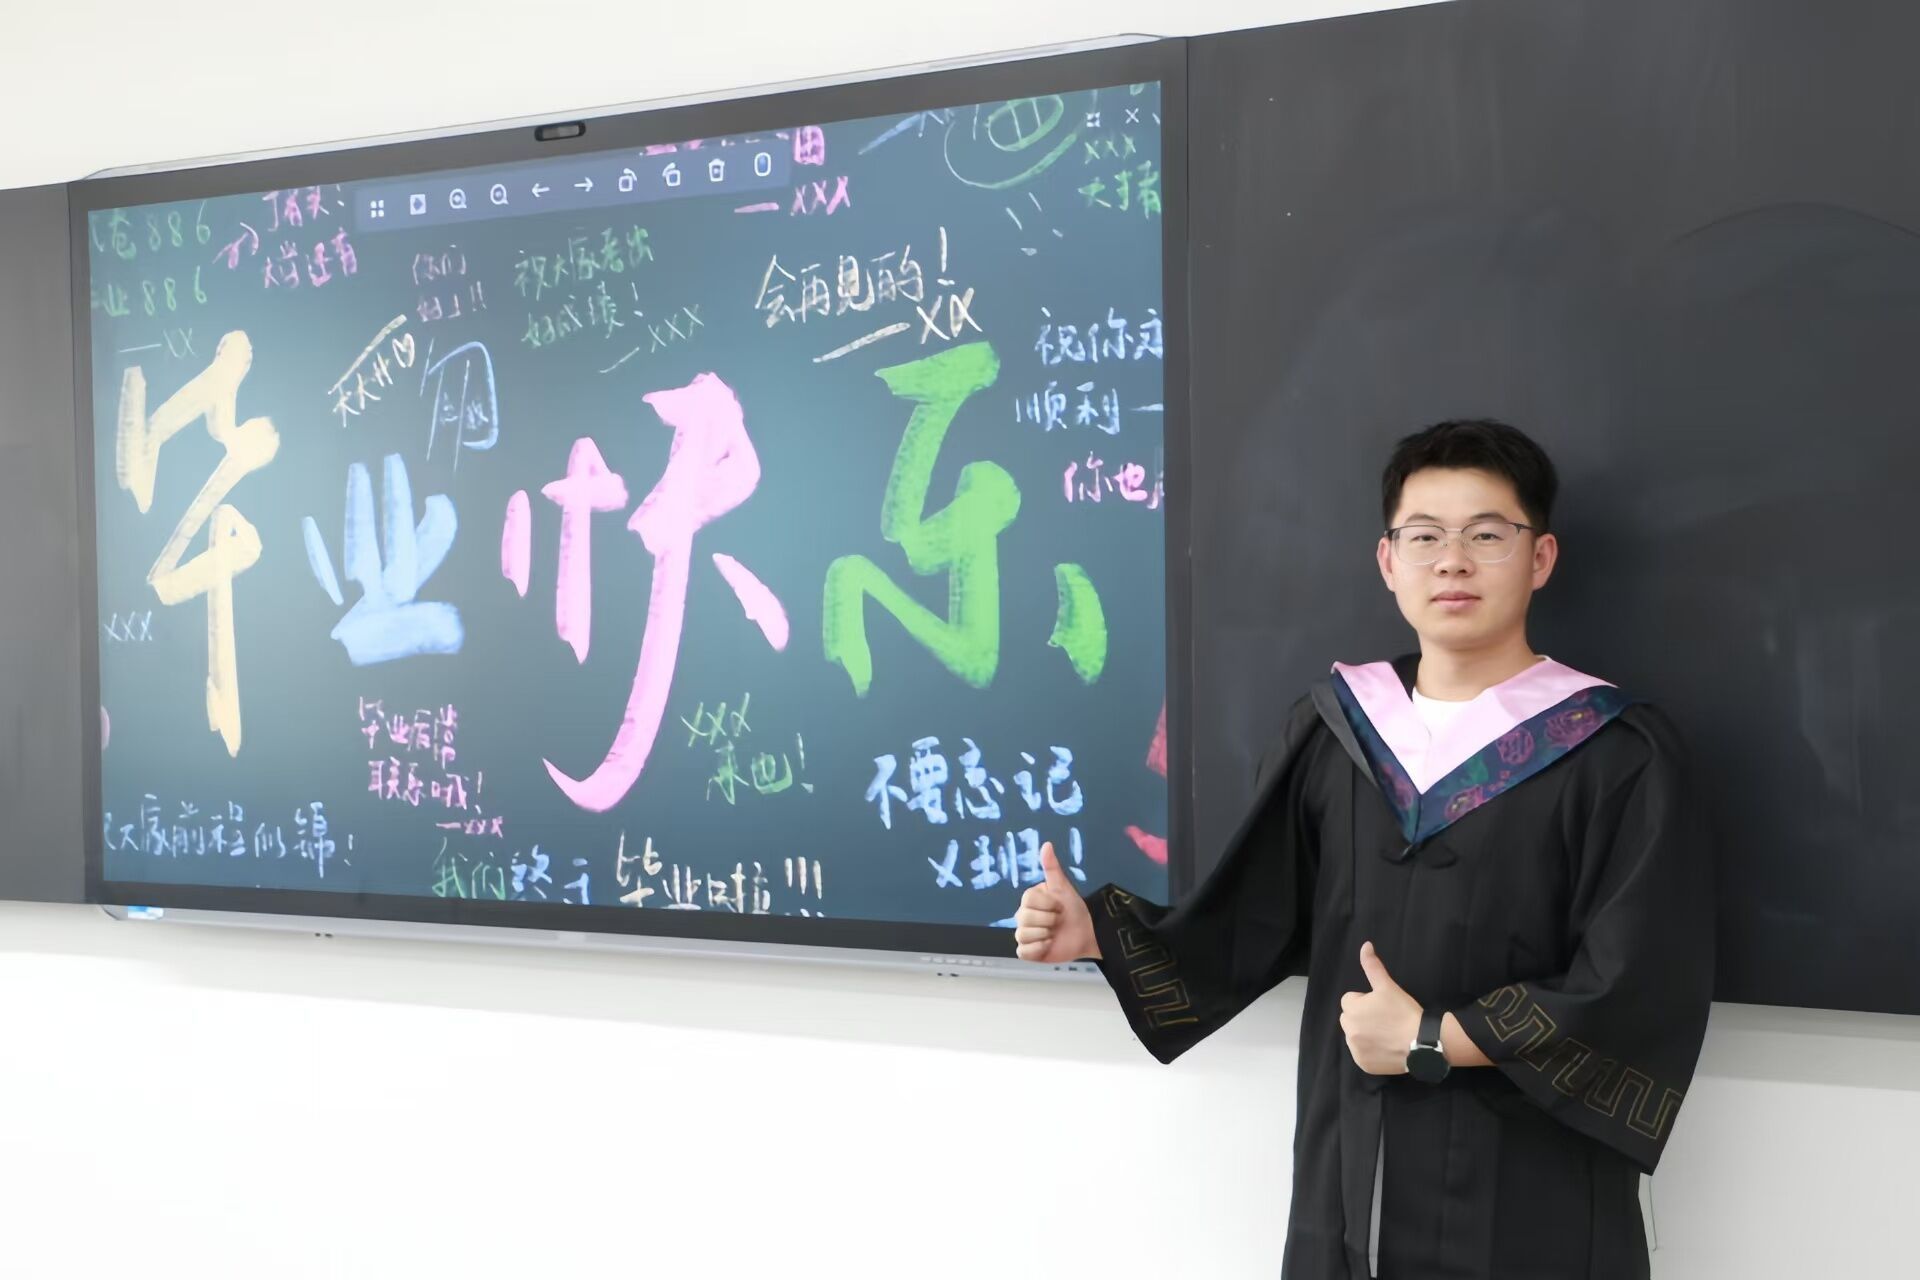 886
业886
—XX
大学还有
你们
好了!!
祝大家考出
好成绩!
—XXX
—XXX
会再见的!
—XX
XXX
祝你
顺利一
你也
天天
毕业快乐
XXX
毕业后常
联系哦!
—XXX
XXX
来也!
不要忘记
X班!
大家前程似锦!
我们终于毕业啦!!!